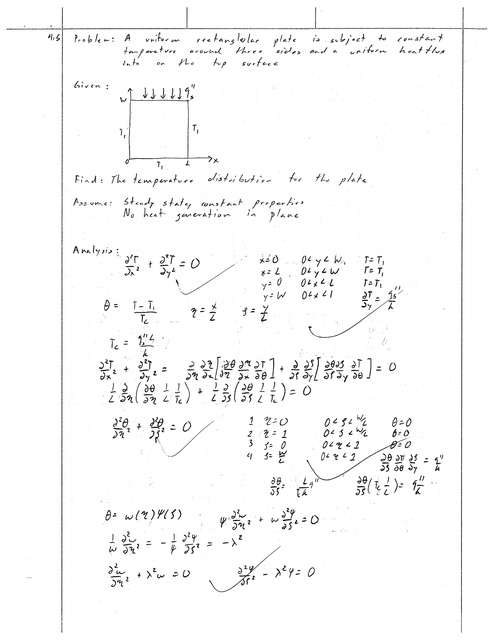 4.5 Problem: A uniform rectangular plate is subject to constant
temperature around three sides and a uniform heat flux
into on the top surface
Given:
W q''s
T₁ T₁
0 T₁ L x
Find: The temperature distribution for the plate
Assume: Steady state, constant properties
No heat generation in plane
Analysis:
∂²T/∂x² + ∂²T/∂y² = 0
x=0 0<y<W T=T₁
x=L 0<y<W T=T₁
y=0 0<x<L T=T₁
y=W 0<x<L ∂T/∂y = q''s/k
θ = (T-T₁)/Tc η = x/L ζ = y/L
Tc = q''s L/k
∂²T/∂x² + ∂²T/∂y² = ∂/∂η ∂η/∂x [∂θ/∂η ∂η/∂x ∂T/∂θ] + ∂/∂ζ ∂ζ/∂y [∂θ/∂ζ ∂ζ/∂y ∂T/∂θ] = 0
1/L ∂/∂η (∂θ/∂η 1/L 1/Tc) + 1/L ∂/∂ζ (∂θ/∂ζ 1/L 1/Tc) = 0
∂²θ/∂η² + ∂²θ/∂ζ² = 0
1 η=0 0<ζ<W/L θ=0
2 η=1 0<ζ<W/L θ=0
3 ζ=0 0<η<1 θ=0
4 ζ=W/L 0<η<1 ∂θ/∂ζ ∂T/∂θ ∂ζ/∂y = q''/k
∂θ/∂ζ = q'' ∂θ/∂ζ (Tc 1/L) = q''/k
θ = w(η)ψ(ζ) ψ ∂²w/∂η² + w ∂²ψ/∂ζ² = 0
1/w ∂²w/∂η² = - 1/ψ ∂²ψ/∂ζ² = -λ²
∂²w/∂η² + λ²w = 0 ∂²ψ/∂ζ² - λ²ψ = 0